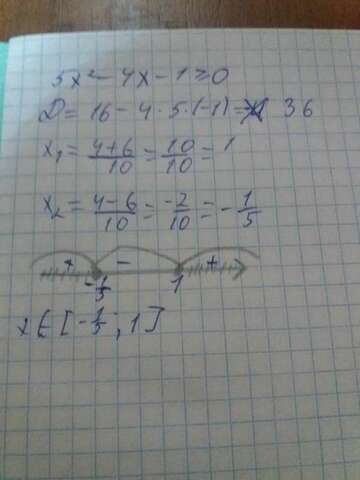 5x² - 4x - 1 ≥ 0
D = 16 - 4 · 5 · (-1) = 36
x₁ = (4+6)/10 = 10/10 = 1
x₂ = (4-6)/10 = -2/10 = -1/5
+ - +
-1/5 1
x ∈ [-1/5; 1]